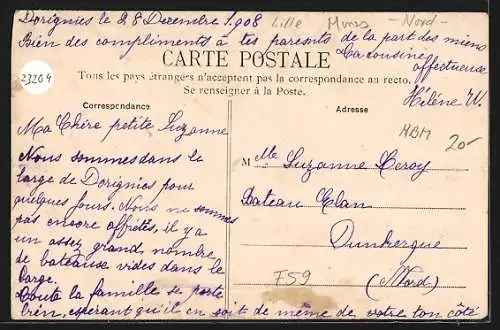 Dorignies le 28 Decembre 1908
Lille Mines - Nord -
Bien des compliments à tes parents de la part des miens
Ta cousine
CARTE POSTALE
affectueuse
Tous les pays étrangers n'acceptent pas la correspondance au recto.
Se renseigner à la Poste.
Hélène W.
23264
Correspondance
Adresse
MBM
20-
Ma Chère petite Suzanne
Nous sommes dans le
barge de Dorignies pour
quelques jours. Nous ne sommes
pas encore affrétés, il y a
un assez grand nombre
de bateaux vides dans le
barge.
Toute la famille se porte
bien, esperant qu'il en soit de même de votre ton côté
M lle Suzanne Leroy
Bateau Elan
Dunkerque
F59
(Nord)